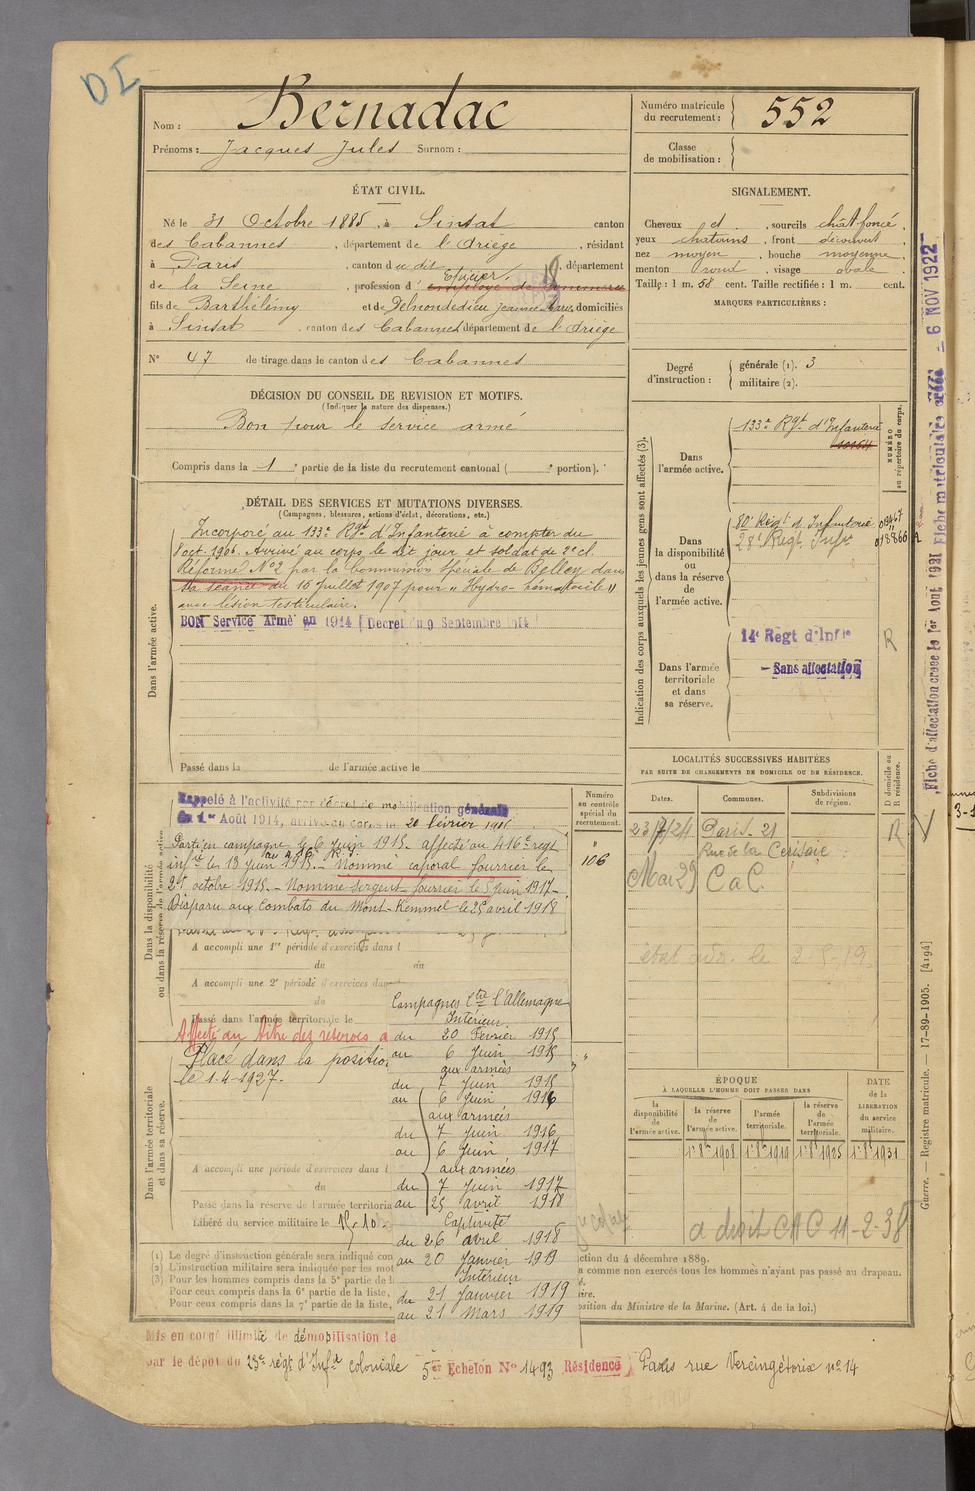 DI
Nom : Bernadac
Prénoms : Jacques Jules Surnom :
Numéro matricule du recrutement : 552
Classe de mobilisation :
ÉTAT CIVIL.
Né le 31 Octobre 1885, à Sinsat canton
des Cabannes, département de l'Ariège, résidant
à Paris, canton du dit, département
Epicier
de la Seine, profession d' employé de commerce
fils de Barthélémy et de Delmondedieu Jeanne Marie, domiciliés
à Sinsat, canton des Cabannes département de l'Ariège
N° 47 de tirage dans le canton des Cabannes
SIGNALEMENT.
Cheveux ct, sourcils chât foncé,
yeux chatains, front découvert,
nez moyen, bouche moyenne,
menton rond, visage ovale
Taille : 1 m. 58 cent. Taille rectifiée : 1 m. cent.
MARQUES PARTICULIÈRES :
Degré d'instruction : générale (1). 3
militaire (2).
DÉCISION DU CONSEIL DE REVISION ET MOTIFS.
(Indiquer la nature des dispenses.)
Bon pour le service armé
Compris dans la 1 e partie de la liste du recrutement cantonal ( e portion).
DÉTAIL DES SERVICES ET MUTATIONS DIVERSES.
(Campagnes, blessures, actions d'éclat, décorations, etc.)
Dans l'armée active.
Incorporé au 133e Rgt d'Infanterie à compter du
8 oct. 1906. Arrivé au corps le dit jour et soldat de 2e cl.
Réformé N°2 par la Commission spéciale de Belley dans
sa séance du 16 Juillet 1907 pour "Hydro-hématocèle"
avec lésion testiculaire.
BON Service Armé en 1914 (Décret du 9 Septembre 1914)
Passé dans la de l'armée active le
Indication des corps auxquels les jeunes gens sont affectés (3).
NUMÉRO au répertoire du corps.
Dans l'armée active.
133e Rgt d'Infanterie
Dans la disponibilité ou dans la réserve de l'armée active.
80e Régt d'Infanterie
28e Régt Infie
Dans l'armée territoriale et dans sa réserve.
14e Regt d'Infie
R
- Sans affectation
LOCALITÉS SUCCESSIVES HABITÉES
PAR SUITE DE CHANGEMENTS DE DOMICILE OU DE RÉSIDENCE.
Dates. Communes. Subdivisions de région. D domicile ou R résidence.
Paris. 21 R
Rue de la Cerisaie
Mai 29 CaC
Dans la disponibilité ou dans la réserve de l'armée active
Numéro au contrôle spécial du recrutement.
106
Rappelé à l'activité par décret de mobilisation générale
du 1er Août 1914, arrivé au corps le 20 février 1915
Parti en campagne le 6 Juin 1915. affecté au 416e regt
infie le 18 Juin 1915. - Nommé caporal fourrier le
25 octobre 1915. - Nommé sergent-fourrier le 5 Juin 1917-
Disparu aux Combats du Mont-Kemmel le 25 avril 1918
A accompli une 1re période d'exercices dans l
du au
A accompli une 2e période d'exercices dans
du
Passé dans l'armée territoriale le
Affecté au titre des réserves a
Placé dans la position
le 1-4-1927.
Dans l'armée territoriale et dans sa réserve.
A accompli une période d'exercices dans l
du
Passé dans la réserve de l'armée territoria
Libéré du service militaire le 15-10-
Campagnes Ctre l'Allemagne
Intérieur
du 20 Février 1915
au 6 Juin 1915
aux armées
du 7 Juin 1915
au 6 Juin 1916
aux armées
du 7 Juin 1916
au 6 Juin 1917
aux armées
du 7 Juin 1917
au 25 avril 1918
Captivité
du 26 avril 1918
au 20 Janvier 1919
Intérieur
du 21 Janvier 1919
au 21 Mars 1919
ÉPOQUE
À LAQUELLE L'HOMME DOIT PASSER DANS
DATE de la LIBÉRATION du service militaire.
la disponibilité de l'armée active.
la réserve de l'armée active.
l'armée territoriale.
la réserve de l'armée territoriale.
1er 8bre 1908
1er 8bre 1919
1er 8bre 1925
1er 8bre 1931
a droit CAC 11-2-38
(1) Le degré d'instruction générale sera indiqué con
ction du 4 décembre 1889.
(2) L'instruction militaire sera indiquée par les mot
a comme non exercés tous les hommes n'ayant pas passé au drapeau.
(3) Pour les hommes compris dans la 5e partie de l
Pour ceux compris dans la 6e partie de la liste,
Pour ceux compris dans la 7e partie de la liste,
osition du Ministre de la Marine. (Art. 4 de la loi.)
Mis en congé illimité de démobilisation le
par le dépôt du 23e régt d'Infie coloniale 5e Echelon N° 1493 Résidence Paris rue Vercingétorix n° 14
Fiche d'affectation créée le 1er Août 1921 Fiche matriculaire créée le - 6 NOV 1922
Guerre. — Registre matricule. — 17-89-1905. [4194]